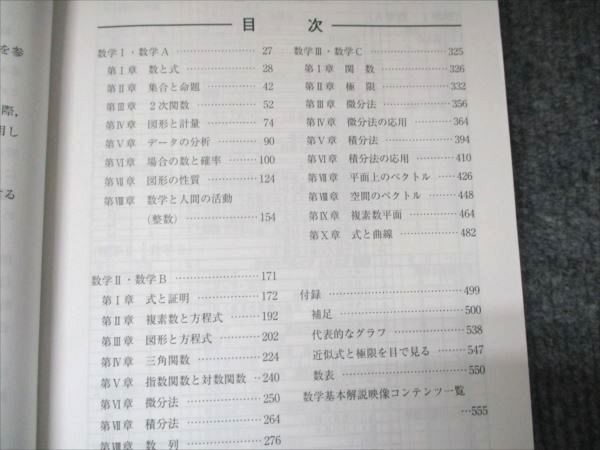 を参
際,
用し
する
目 次
数学Ⅰ・数学A ………… 27
第Ⅰ章 数と式 ………… 28
第Ⅱ章 集合と命題 ………… 42
第Ⅲ章 2次関数 ………… 52
第Ⅳ章 図形と計量 ………… 74
第Ⅴ章 データの分析 ………… 90
第Ⅵ章 場合の数と確率 ………… 100
第Ⅶ章 図形の性質 ………… 124
第Ⅷ章 数学と人間の活動
(整数) ………… 154
数学Ⅱ・数学B ………… 171
第Ⅰ章 式と証明 ………… 172
第Ⅱ章 複素数と方程式 ………… 192
第Ⅲ章 図形と方程式 ………… 202
第Ⅳ章 三角関数 ………… 224
第Ⅴ章 指数関数と対数関数 … 240
第Ⅵ章 微分法 ………… 250
第Ⅶ章 積分法 ………… 264
第Ⅷ章 数 列 ………… 276
数学Ⅲ・数学C ………… 325
第Ⅰ章 関 数 ………… 326
第Ⅱ章 極 限 ………… 332
第Ⅲ章 微分法 ………… 356
第Ⅳ章 微分法の応用 ………… 364
第Ⅴ章 積分法 ………… 394
第Ⅵ章 積分法の応用 ………… 410
第Ⅶ章 平面上のベクトル ……… 426
第Ⅷ章 空間のベクトル ………… 448
第Ⅸ章 複素数平面 ………… 464
第Ⅹ章 式と曲線 ………… 482
付録 ………… 499
補足 ………… 500
代表的なグラフ ………… 538
近似式と極限を目で見る ……… 547
数表 ………… 550
数学基本解説映像コンテンツ一覧
…555